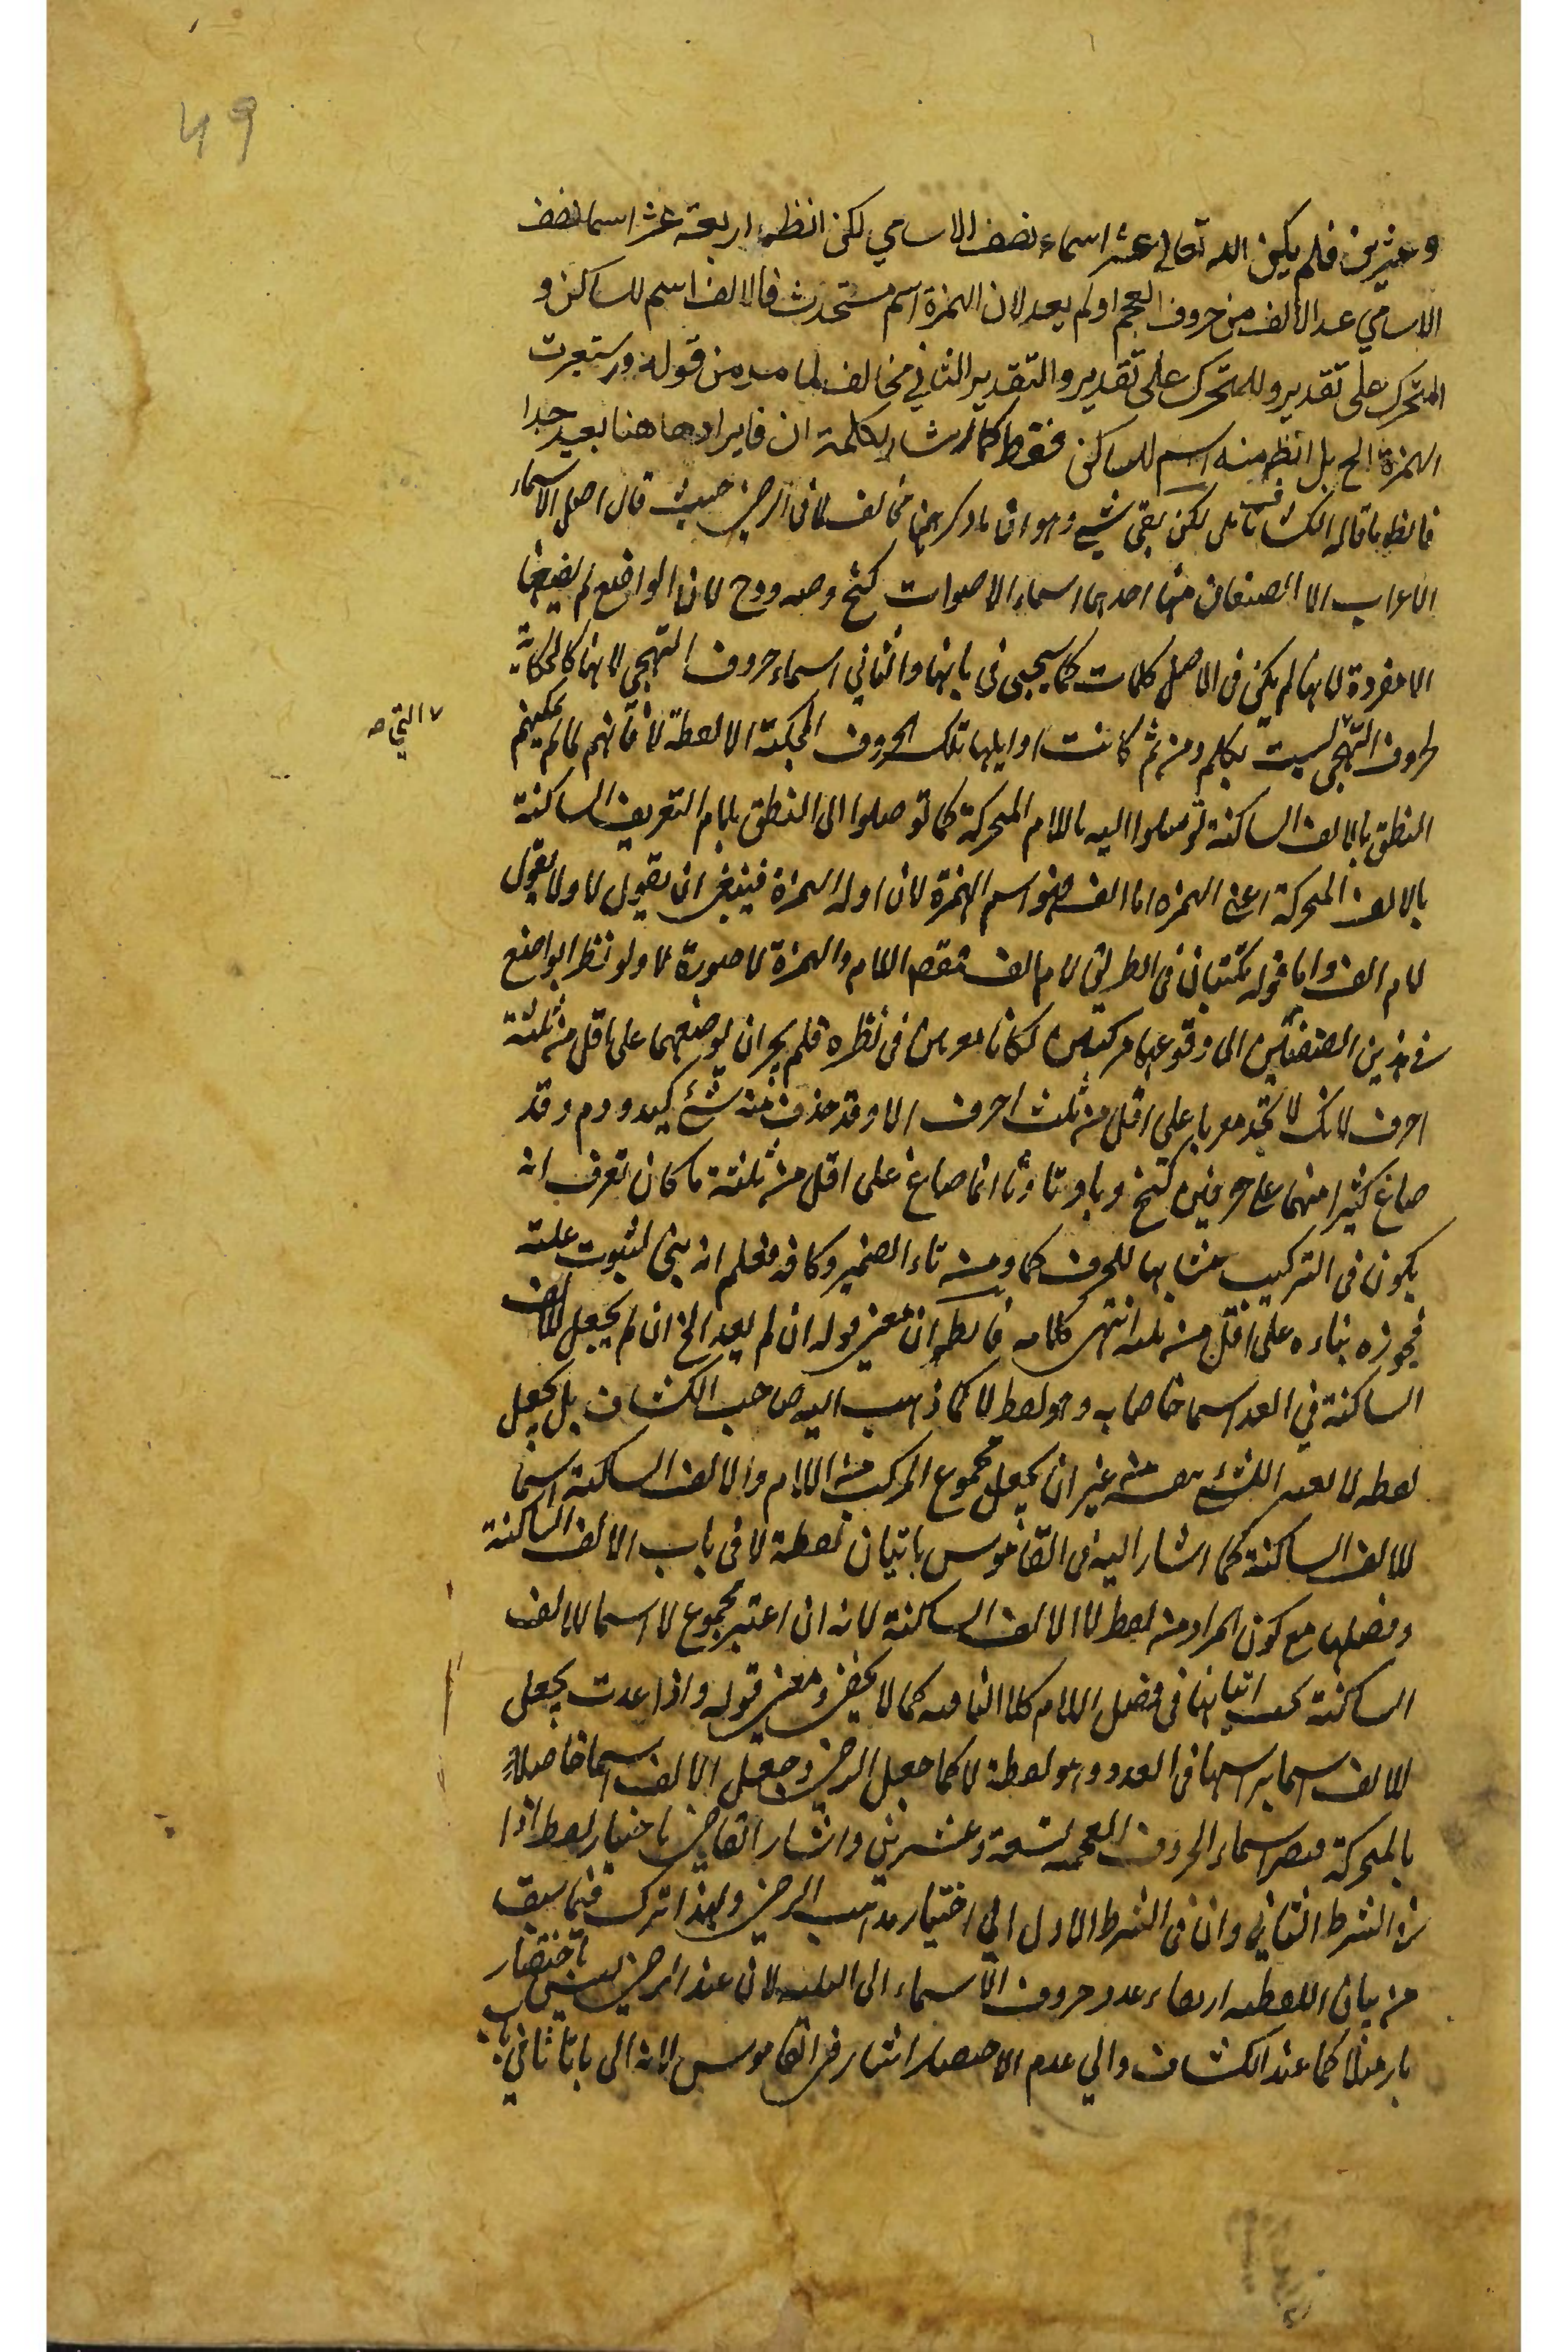 49
وعشرين فلم يكن الله تعالى عشر اسماء نصف الاسامي لكن انظر اربعة عشر اسما نصف
الاسامي عد الالف من حروف المعجم اولم يعد لان الهمزة اسم مستحدث فالالف اسم للساكن و
المتحرك على تقدير وللمتحرك على تقدير والتقدير الثاني مخالف لما مر من قوله واستعيرت
الهمزة الخ بل انظر منه اسم للساكن فقط كما اشار بكلمة ان فايرادها هنا بعيد جدا
ما قاله الكشاف تامل لكن بقي شيء وهو ان ما ذكر ههنا مخالف لما في الرضي حيث قال اصل الاسماء
الاعراب الا الصنفان منها احدهما اسماء الاصوات كنخ وصه ودح لان الواضع لم يضعها
الا مفردة لانها لم يكن في الاصل كلمات كما سيجيى في بابها والثاني اسماء حروف التهجي لانها كالحكاية
لحروف التهجي ليست بكلم ومن ثم كانت اوايلها تلك الحروف المحكية الا لفظة لا فانهم لما لم يمكنهم
التي صح
النطق بالالف الساكنة توصلوا اليه باللام المتحركة كما توصلوا الى النطق بلام التعريف الساكنة
بالالف المتحركة اعني الهمزه اما الف فهو اسم الهمزة لان اوله الهمزة فينبغي ان يقول لا ولا يقول
لام الف واما قوله تكتبان في الطريق لام الف فقصد اللام والهمزة لا صورة لا ولو نظر الواضع
في هذين الصنفين الى وقوعهما مركبين لكانا معربين في نظره فلم يجز ان يوضعهما على اقل من ثلثة
احرف لانك لا تجد معربا على اقل من ثلث احرف الا وقد حذف منه شئ كيد ودم وقد
صاغ كثيرا منهما على حرفين كنخ وبا وتا وثا انما صاغ على اقل من ثلثة ما كان يعرف انه
يكون في التركيب مشابها للحرف كما ومن تاء الضمير وكافه فعلم انه بنى لثبوت علته
فجوزه بناءه على اقل من ثلثه انتهى كلامه فالظ ان معنى قوله ان لم يعد الخ ان لم يجعل للالف
الساكنة في العد اسما خاصا به وهو لفظ لا كما ذهب اليه صاحب الكشاف بل يجعل
لفظه لا من غير ان يجعل مجموع المركب من اللام والالف الساكنة اسما
للالف الساكنة كما اشار اليه في القاموس باتيان لفظة لا في باب الالف الساكنة
وفصلها مع كون المراد من لفظ لا الالف الساكنة لانه ان اعتبر مجموع لا اسما للالف
الساكنة يجب اتيانها في فصل اللام كما لا يخفى ومعنى قوله واذا عدت يجعل
للالف اسما براسها في العدد وهو لفظة لا كما جعل الرضي وجعل الالف اسما خاصا
بالمتحركة فيصير اسماء الحروف المعجمه تسعة وعشرين واشار القاضي باختيار لفظ اذا
في الشرط الثاني وان في الشرط الاول الى اختيار مذهب الرضي ولهذا ترك فيما سبق
من بيان عدد حروف الاسماء الى لان عند الرضي ليس باختصار
با مثلا كما عند الكشاف والى عدم الاختصار اشار في القاموس لانه الى